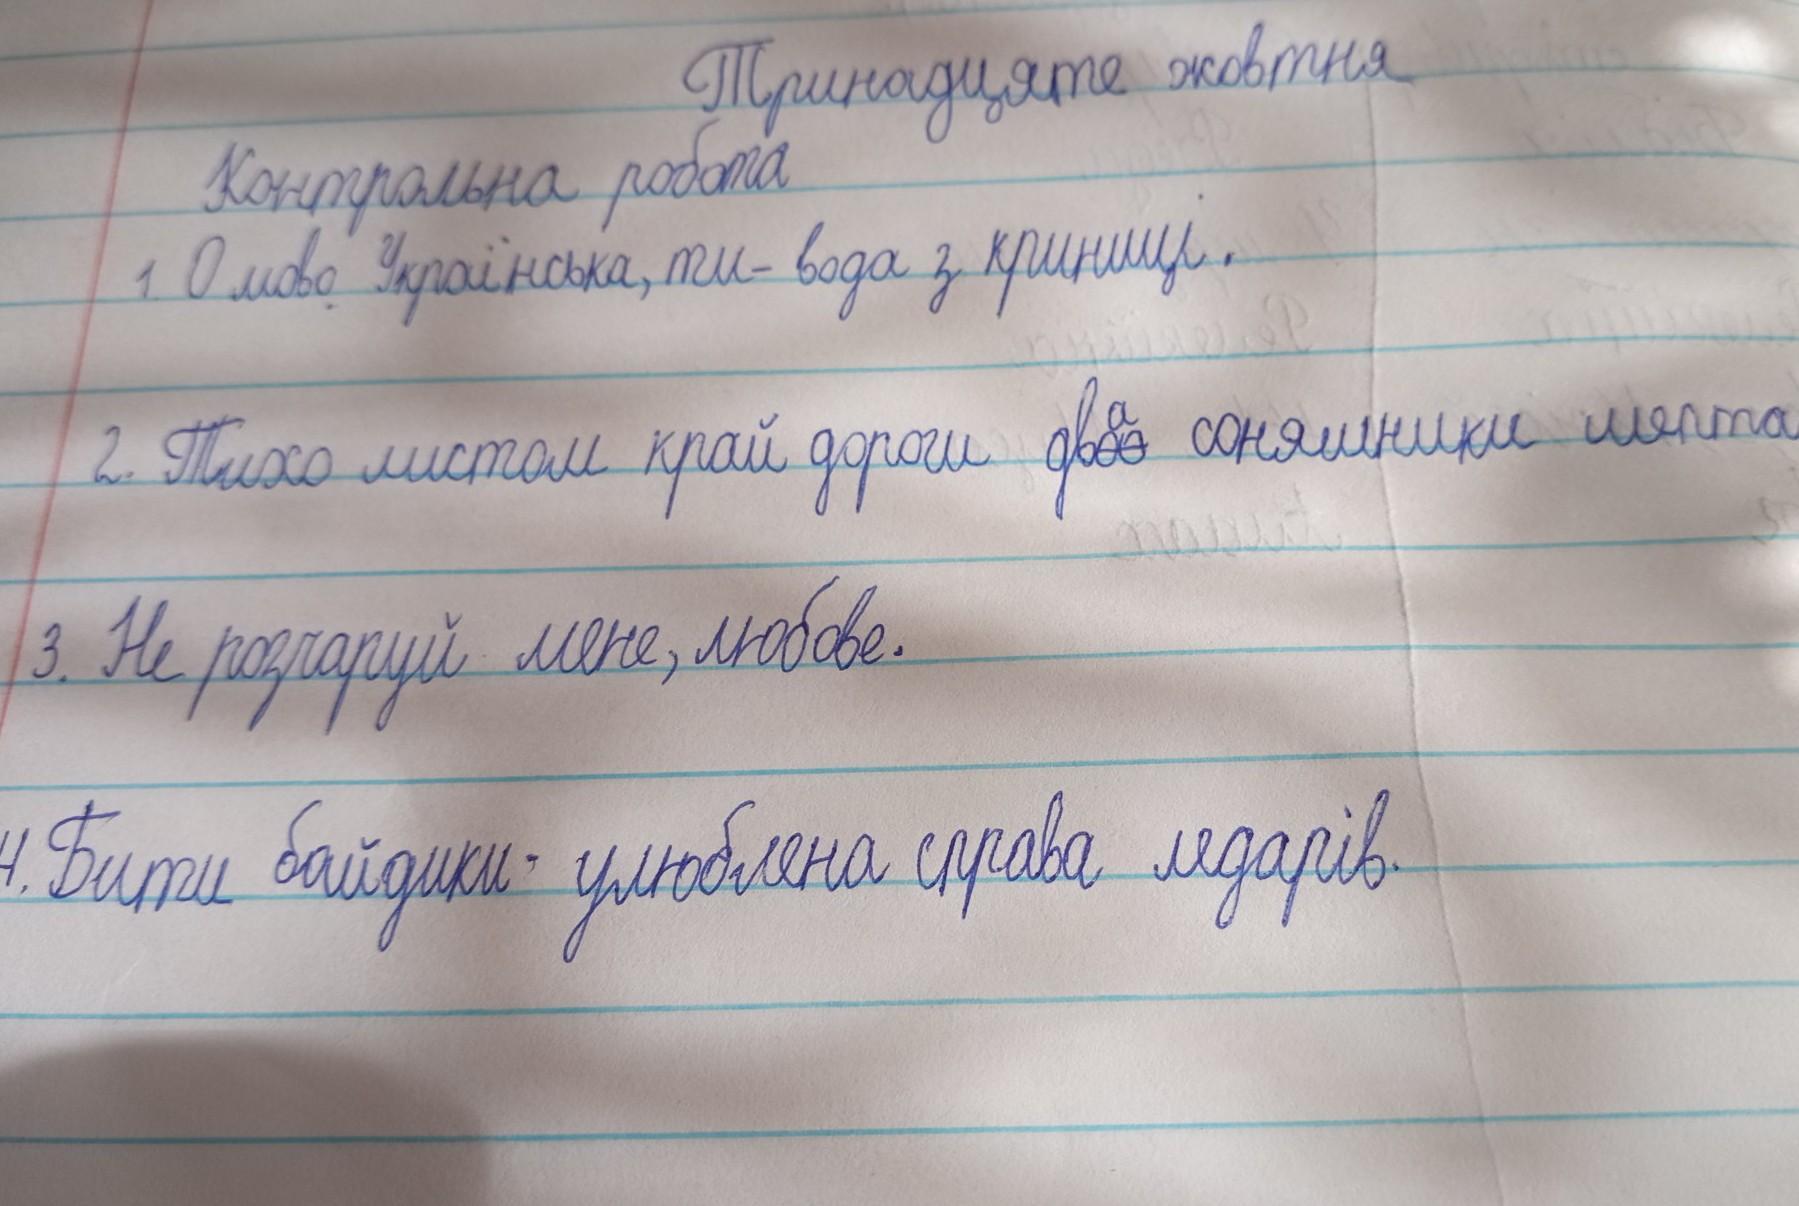 Тринадцяте жовтня
Контрольна робота
1. О мово Українська, ти - вода з криниці.
2. Тихо листом край дороги два соняшники шепта
3. Не розчаруй мене, любове.
4. Бити байдики - улюблена справа ледарів.